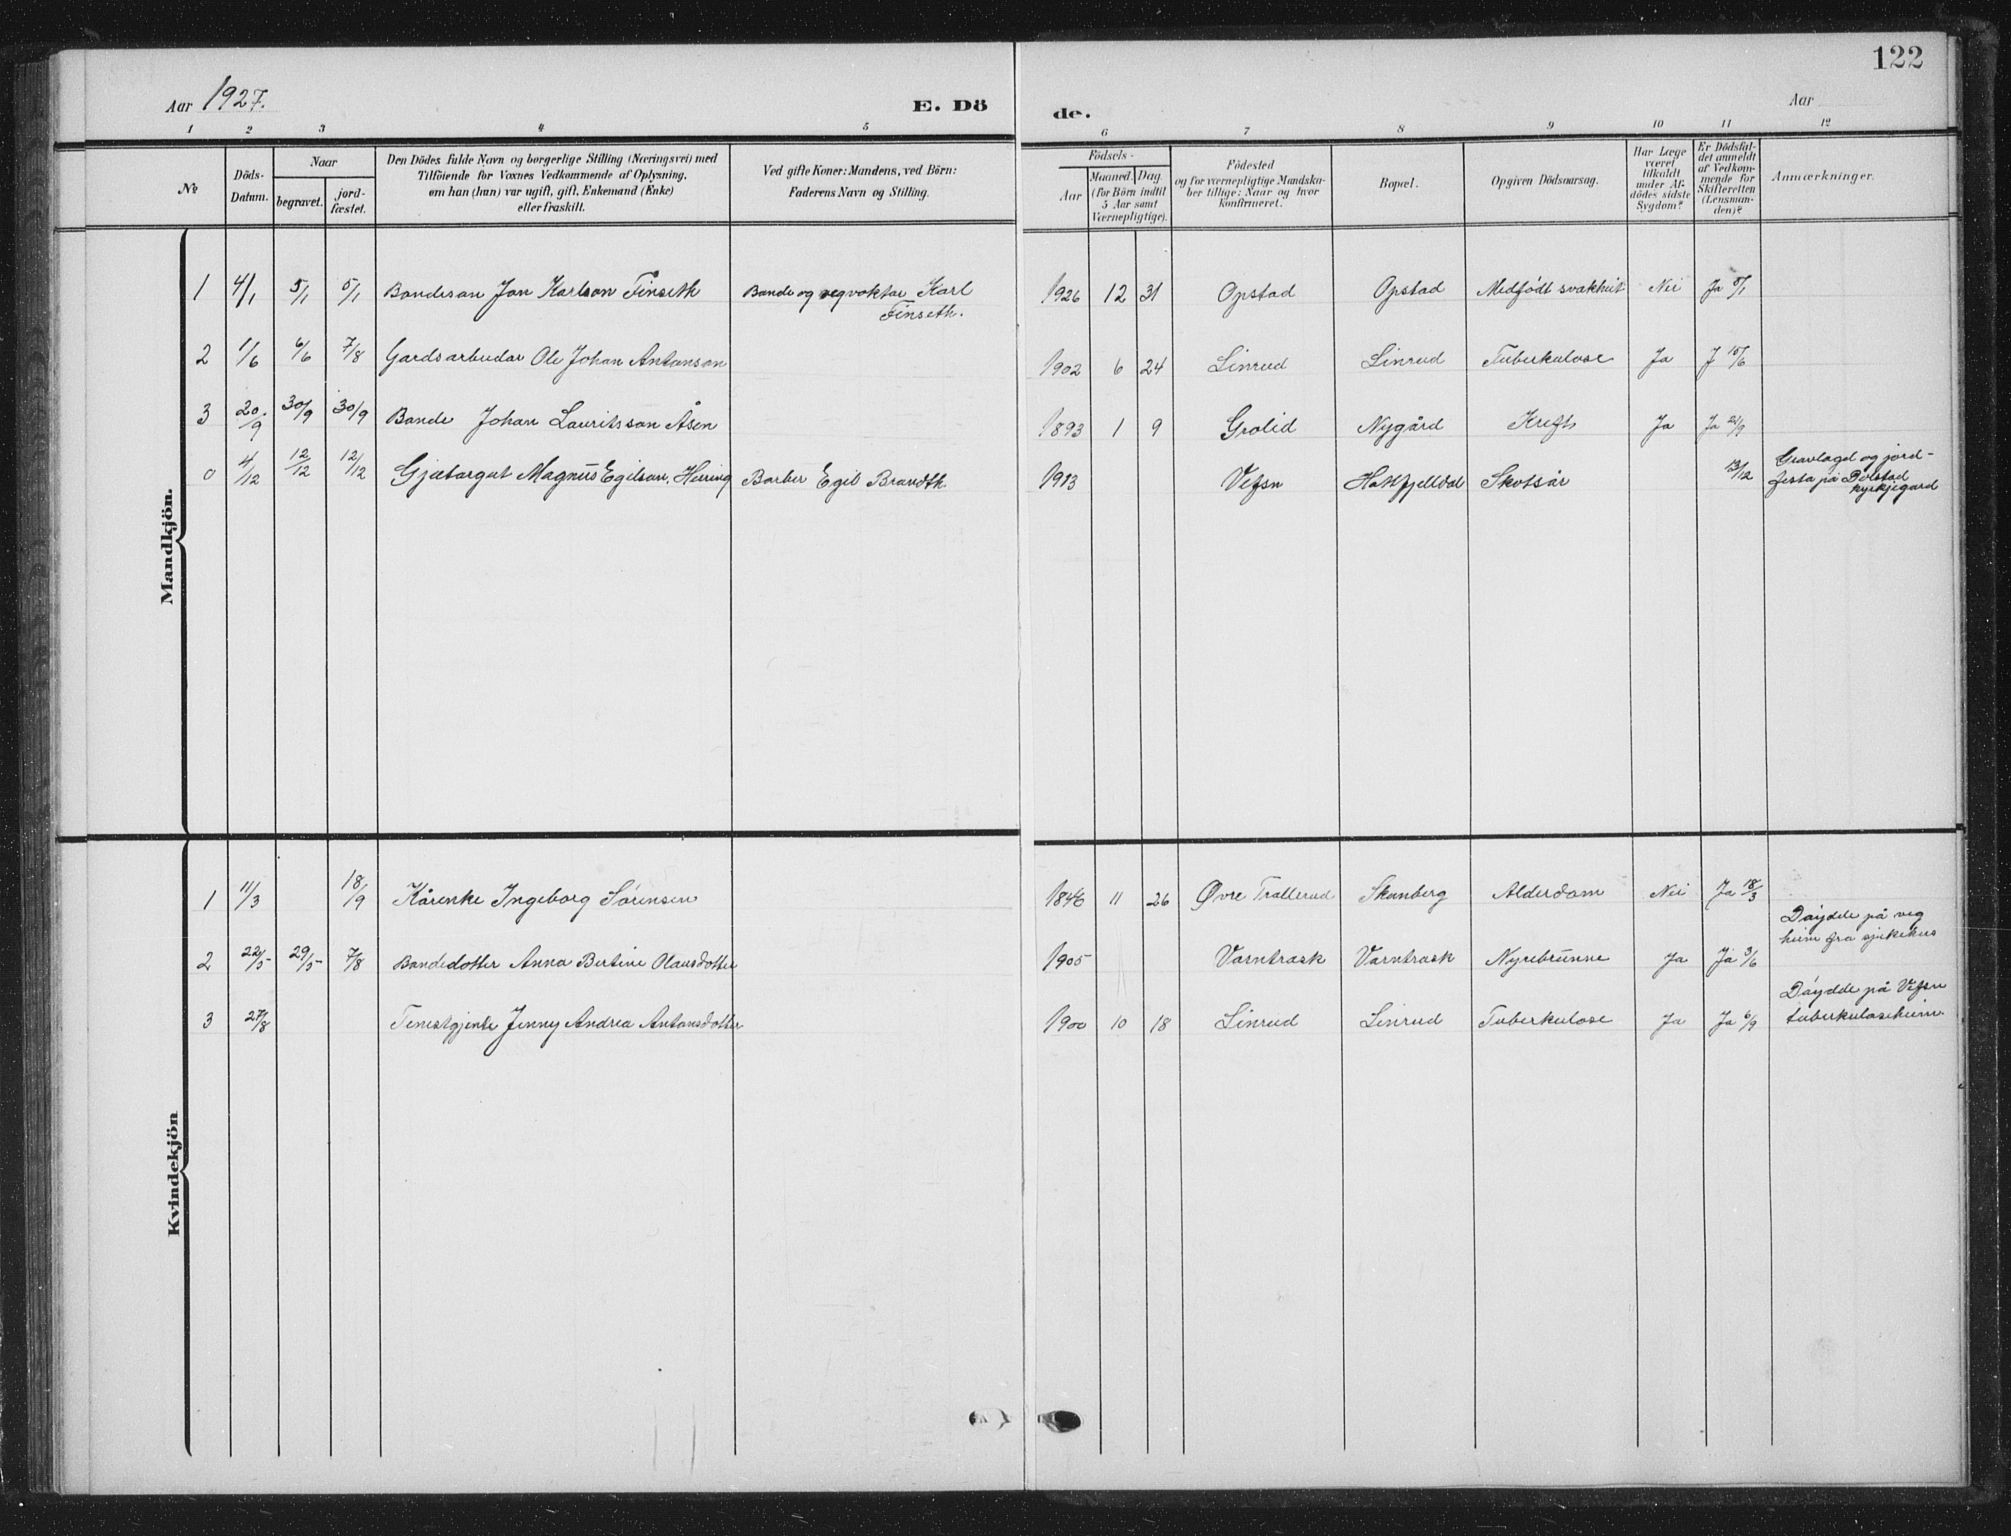 122
Aar 1927. E. Dö de. Aar
1 2 3 4 5 6 7 8 9 10 11 12
No
Döds-Datum.
Naar
begravet. jord-fæstet.
Den Dödes fulde Navn og borgerlige Stilling (Næringsvei) med
Tilföiende for Voxnes Vedkommende af Oplysning,
om han (hun) var ugift, gift, Enkemand (Enke)
eller fraskilt.
Ved gifte Koner: Mandens, ved Börn:
Faderens Navn og Stilling.
Födsels-
Aar Maaned. Dag
(for Börn indtil
5 Aar samt
Værnepligtige).
Födested
og for værnepligtige Mandska-
ber tillige: Naar og hvor
Konfirmeret.
Bopæl.
Opgiven Dödsaarsag.
Har Læge
været
tilkaldt
under Af-
dödes sidste
Sygdom?
Er Dödsfal-
det anmeldt
af Vedkom-
mende for
Skifteretten
(Lensman-
den)?
Anmærkninger.
Mandkjön.
1 4/1 5/1 5/1 Bondeson Jon Karlson Finseth Bonde og vegvoktar Karl Finseth. 1926 12 31 Opstad Opstad Medfödt svakheit Nei Ja 5/1
2 1/6 6/6 7/8 Gardsarbeidar Ole Johan Antonson 1902 6 24 Linrud Linrud Tuberkulose Ja J 15/6
3 20/9 30/9 30/9 Bonde Johan Lauritsson Åsen 1893 1 9 Grolid Nygård Kreft Ja Ja 21/9
0 4/12 12/12 12/12 Gjætargut Magnus Egilson, Herring Barber Egil Brandth 1913 Vefsn Hattfjelldal Skotsår 13/12 Gravlagd og jord-
festa på Dolstad
kyrkjegard
Kvindekjön
1 11/3 18/9 Kårenke Ingeborg Sörensen 1846 11 26 Øvre Trallerud Skanberg Alderdom Nei Ja 18/3
2 22/5 29/5 7/8 Bondedotter Anna Bertine Olausdotter 1905 Varntrask Varntrask Nyrebrunne Ja Ja 3/6 Döydde på veg
heim fra sjukehus
3 27/8 Tenestgjente Jenny Andrea Antonsdotter 1900 10 18 Linrud Linrud Tuberkulose Ja Ja 6/9 Döydde på Vefsn
tuberkuloseheim.